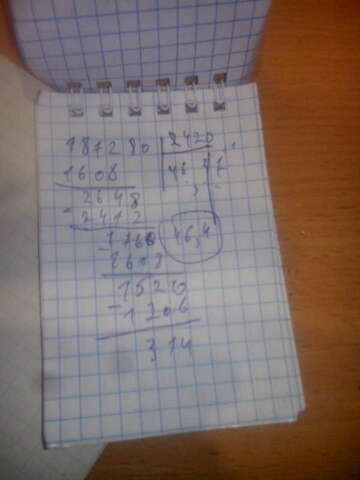 187280 2420
1608 46
2648
- 2412
46,4
- 1608
1520
- 1206
314